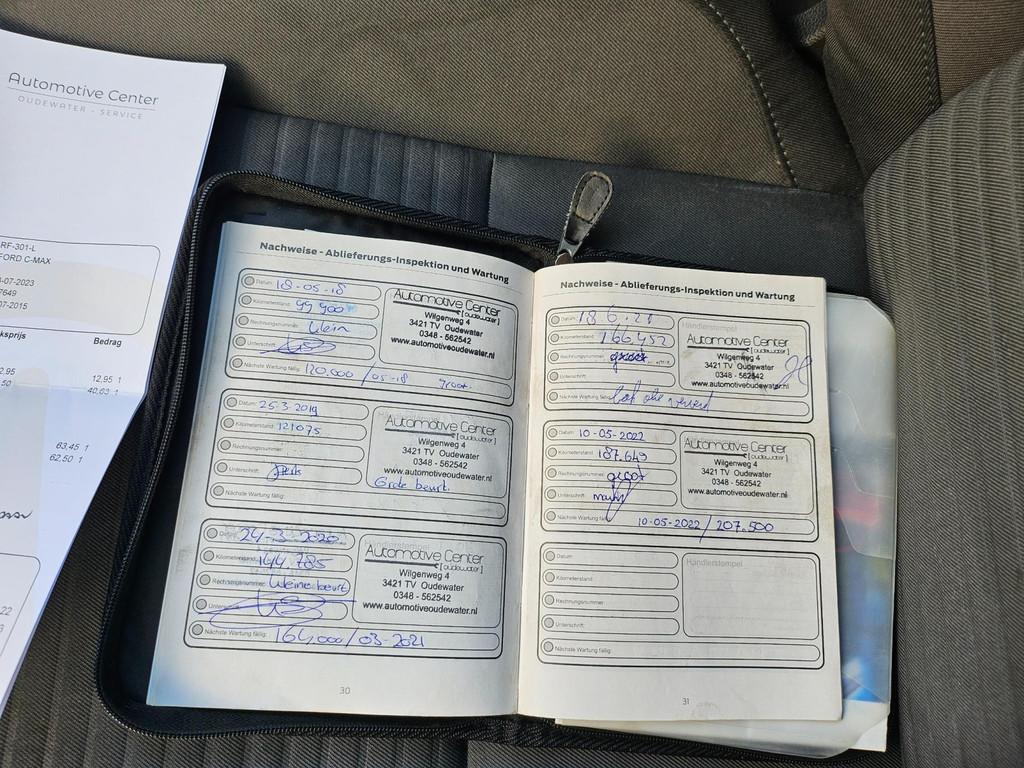 Automotive Center
OUDEWATER - SERVICE
RF-301-L
FORD C-MAX
-07-2023
7649
07-2015
ksprijs Bedrag
2,95 12,95 1
50 40,63 1
63,45 1
62,50 1
22
Nachweise - Ablieferungs-Inspektion und Wartung
Datum: 18-05-18
Kilometerstand: 99 900
Rechnungsnummer: klein
Unterschrift:
Nächste Wartung fällig: 120.000 / 05-18 groot
Automotive Center
[oudewater]
Wilgenweg 4
3421 TV Oudewater
0348 - 562542
www.automotiveoudewater.nl
Datum: 25-3-2019
Kilometerstand: 121075
Rechnungsnummer:
Unterschrift:
Nächste Wartung fällig:
Händlerstempel
Automotive Center
[oudewater]
Wilgenweg 4
3421 TV Oudewater
0348 - 562542
www.automotiveoudewater.nl
Grote beurt.
24-3-2020
Kilometerstand: 144.785
Rechnungsnummer: kleine beurt
Unterschrift:
Nächste Wartung fällig: 164,000/03-2021
Automotive Center
[oudewater]
Wilgenweg 4
3421 TV Oudewater
0348 - 562542
www.automotiveoudewater.nl
30
Nachweise - Ablieferungs-Inspektion und Wartung
Datum: 18.6.21
Kilometerstand: 166,452
Rechnungsnummer: groot
Unterschrift:
Nächste Wartung fällig:
Händlerstempel
Automotive Center
[oudewater]
Wilgenweg 4
3421 TV Oudewater
0348 - 562542
www.automotiveoudewater.nl
Datum: 10-05-2022
Kilometerstand: 187.649
Rechnungsnummer: groot
Unterschrift:
Nächste Wartung fällig: 10-05-2022 / 207.500
Automotive Center
[oudewater]
Wilgenweg 4
3421 TV Oudewater
0348 - 562542
www.automotiveoudewater.nl
Datum:
Kilometerstand:
Rechnungsnummer:
Unterschrift:
Nächste Wartung fällig:
Händlerstempel
31